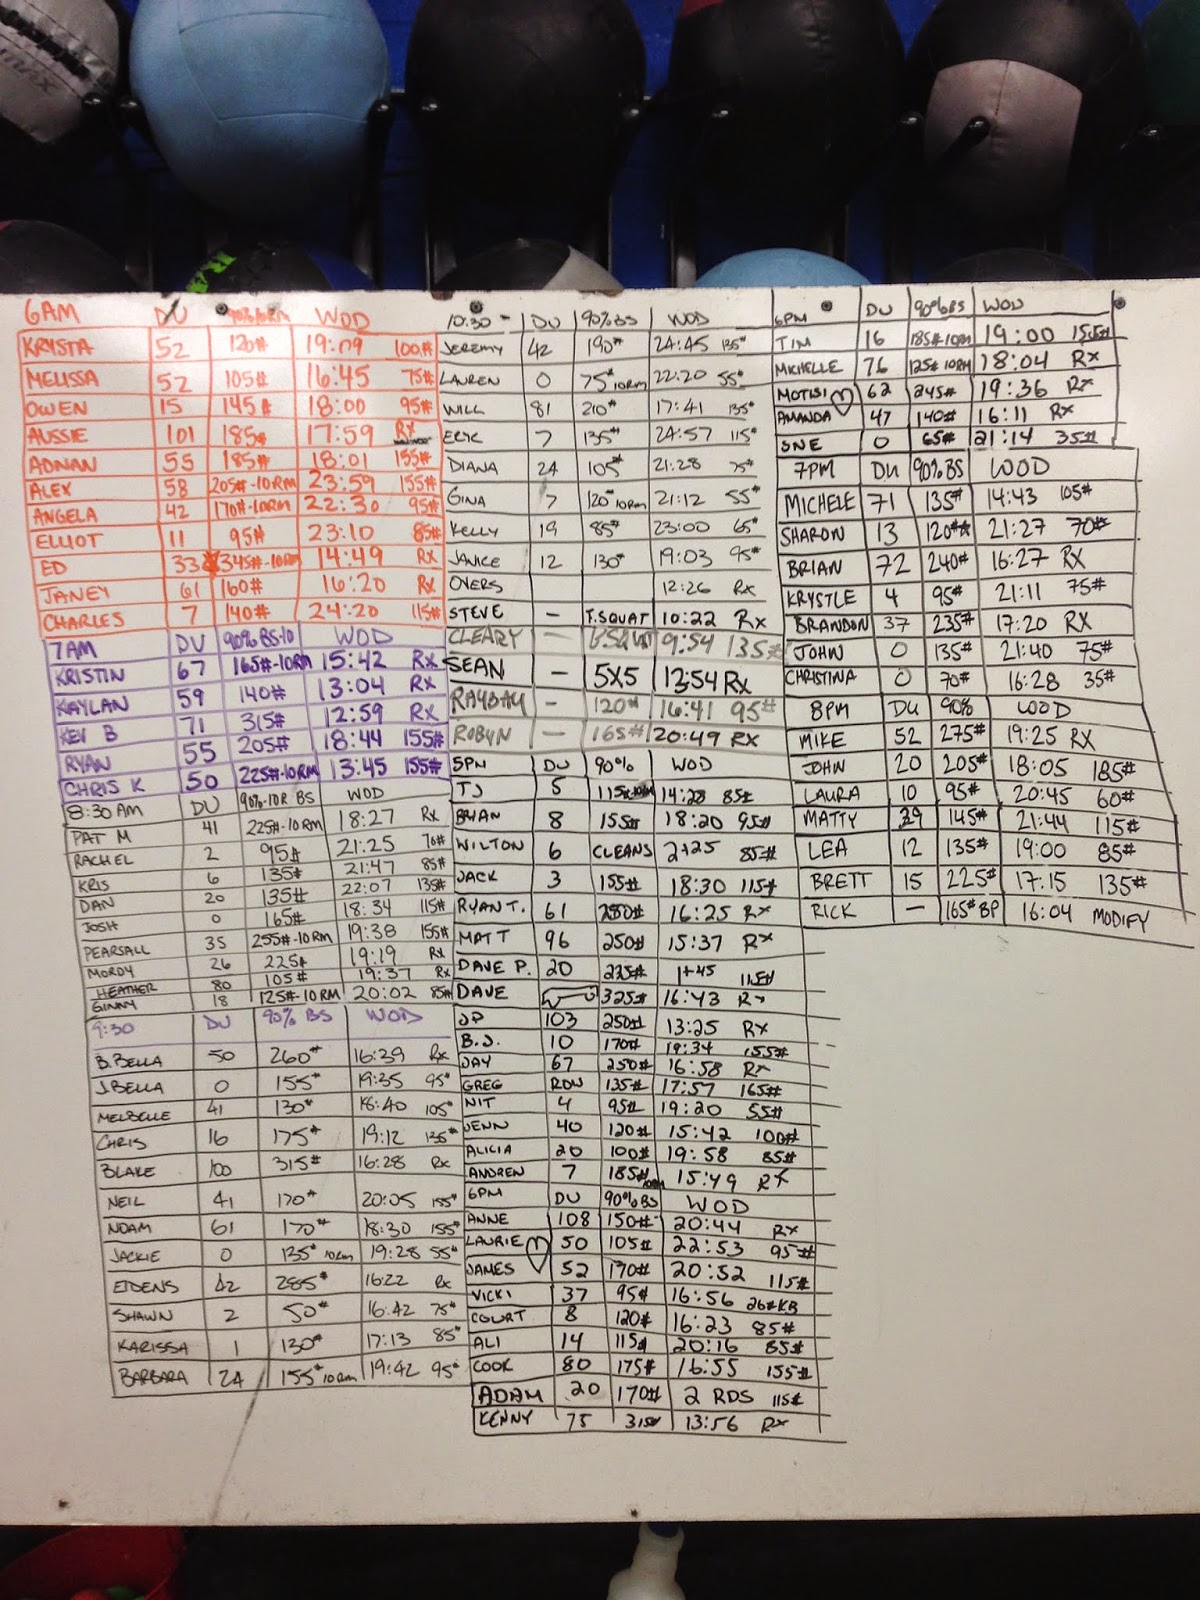 6AM DU 90% 10RM WOD
KRYSTA 52 120# 19:09 100#
MELISSA 52 105# 16:45 75#
OWEN 15 145# 18:00 95#
AUSSIE 101 185# 17:59 RX
ADNAN 55 185# 18:01 155#
ALEX 58 205#-10RM 23:59 155#
ANGELA 42 170#-10RM 22:30 95#
ELLIOT 11 95# 23:10 85#
ED 33 345#-10RM 14:49 RX
JANEY 61 160# 16:20 RX
CHARLES 7 140# 24:20 115#
7AM DU 90% BS-10 WOD
KRISTIN 67 165#-10RM 15:42 RX
KAYLAN 59 140# 13:04 RX
KEV B 71 315# 12:59 RX
RYAN 55 205# 18:44 155#
CHRIS K 50 225#-10RM 13:45 155#
8:30 AM DU 90%-10R BS WOD
PAT M 41 225#-10RM 18:27 Rx
RACHEL 2 95# 21:25 70#
KRIS 6 135# 21:47 85#
DAN 20 135# 22:07 135#
JOSH 0 165# 18:34 115#
PEARSALL 35 255#-10RM 19:38 155#
MORDY 26 225# 19:19 Rx
HEATHER 80 105# 19:37 Rx
GINNY 18 125#-10RM 20:02 85#
9:30 DU 90% BS WOD
B.BELLA 50 260# 16:39 Rx
J.BELLA 0 155# 19:35 95#
MELBELLE 41 130# 18:40 105#
CHRIS 16 175# 19:12 135#
BLAKE 100 315# 16:28 Rx
NEIL 41 170# 20:05 155#
NOAM 61 170# 18:30 155#
JACKIE 0 135# 10RM 19:28 55#
EIDENS 42 285# 16:22 Rx
SHAWN 2 50# 16:42 75#
KARISSA 1 130# 17:13 85#
BARBARA 24 155# 10RM 19:42 95#
10:30 - DU 90% BS WOD
JEREMY 42 190# 24:45 135#
LAUREN 0 75# 10RM 22:20 55#
WILL 81 210# 17:41 135#
ERIC 7 135# 24:57 115#
DIANA 24 105# 21:28 75#
GINA 7 120# 10RM 21:12 55#
KELLY 19 85# 23:00 65#
JANICE 12 130# 19:03 95#
OVERS 12:26 Rx
STEVE - F.SQUAT 10:22 Rx
CLEARY - 9:54 135#
SEAN - 5X5 Rx
RAYBAY - 120# 16:41 95#
ROBYN - 165# 20:49 RX
5PM DU 90% WOD
TJ 5 14:28 85#
BRYAN 8 155# 18:20 95#
WILTON 6 CLEANS 2+25 85#
JACK 3 155# 18:30 115#
RYAN T. 61 250# 16:25 Rx
MATT 96 250# 15:37 Rx
DAVE P. 20 235# 1+45 115#
DAVE 325# 16:43 Rx
JP 103 250# 13:25 RX
B.J. 10 170# 19:34 155#
JAY 67 250# 16:58 Rx
GREG ROW 135# 17:57 165#
NIT 4 95# 19:20 55#
JENN 40 120# 15:42 100#
ALICIA 20 100# 19:58 85#
ANDREW 7 185# 10RM 15:49 RX
6PM DU 90% BS WOD
ANNE 108 150# 20:44 Rx
LAURIE 50 105# 22:53 95#
JAMES 52 170# 20:52 115#
VICKI 37 95# 16:56 26#KB
COURT 8 120# 16:23 85#
ALI 14 115# 20:16 85#
COOK 80 175# 16:55 155#
ADAM 20 170# 2 RDS 115#
KENNY 75 315# 13:56 Rx
6PM DU 90% BS WOD
TIM 16 185# 10RM 19:00 155#
MICHELLE 76 125# 10RM 18:04 Rx
MOTISI 62 245# 19:36 Rx
AMANDA 47 140# 16:11 Rx
SNE 0 65# 21:14 35#
7PM DU 90% BS WOD
MICHELE 71 135# 14:43 105#
SHARON 13 120# 21:27 70#
BRIAN 72 240# 16:27 RX
KRYSTLE 4 95# 21:11 75#
BRANDON 37 235# 17:20 RX
JOHN 0 135# 21:40 75#
CHRISTINA 0 70# 16:28 35#
8PM DU 90% WOD
MIKE 52 275# 19:25 RX
JOHN 20 205# 18:05 185#
LAURA 10 95# 20:45 60#
MATTY 39 145# 21:44 115#
LEA 12 135# 19:00 85#
BRETT 15 225# 17:15 135#
RICK - 165# BP 16:04 MODIFY